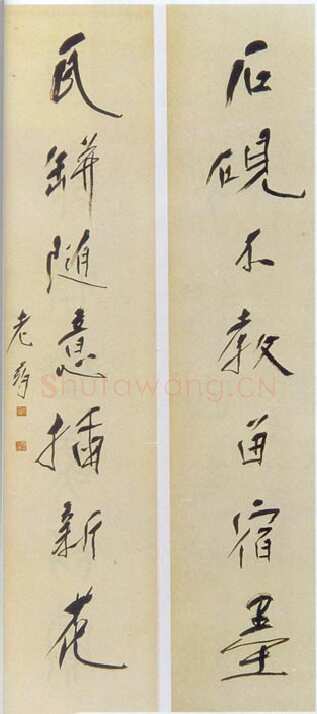 石硯不教留宿墨
瓦缾随意插新花
Shufawang.CN